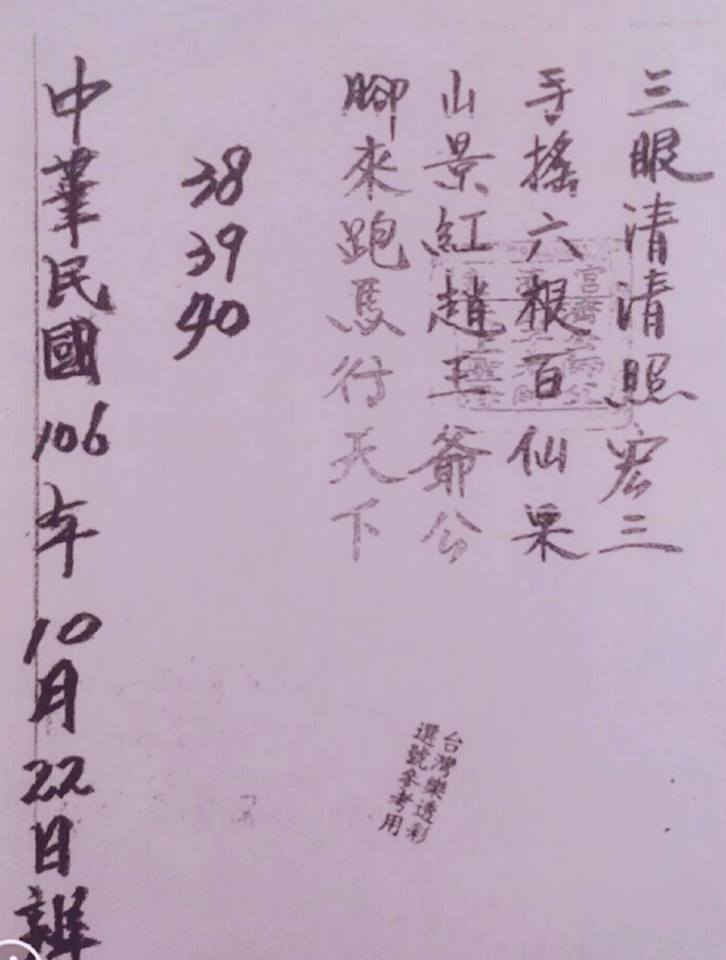 三眼清清照宏三
手搖六根百仙果
山景紅趙王爺公
腳來跑馬行天下
38
39
40
中華民國106年10月22日
台灣樂透彩
選號參考用